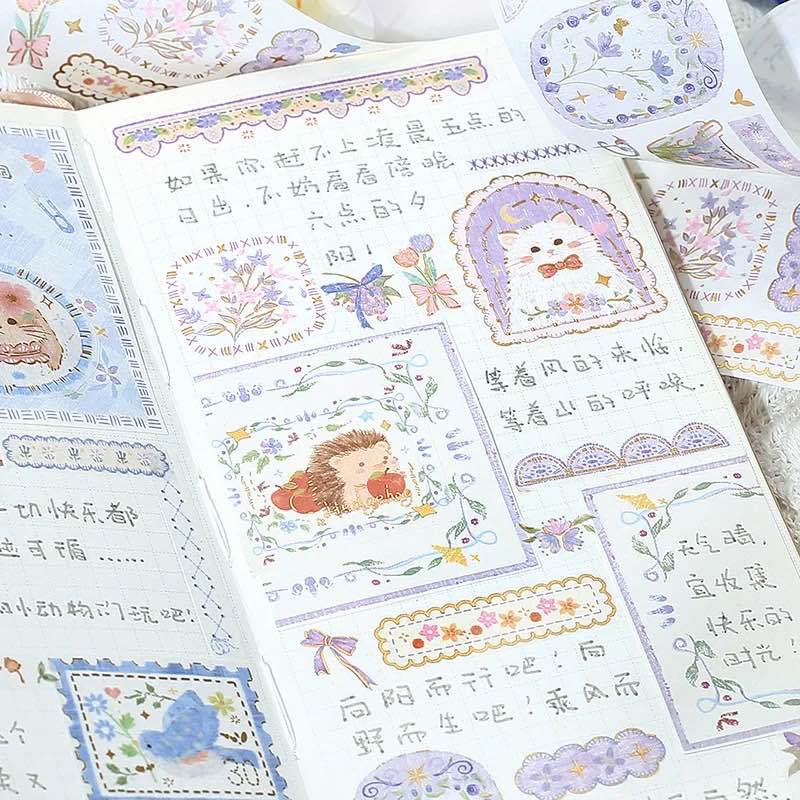 一切快乐都
迹可循......
和小动物们玩吧!
30
如果你赶不上凌晨五点的
日出,不妨看看傍晚
六点的夕
阳!
等着风的来临,
等着山的呼唤.
天气晴,
宜收集
快乐的
时光!
向阳而行吧!向
野而生吧!乘风而